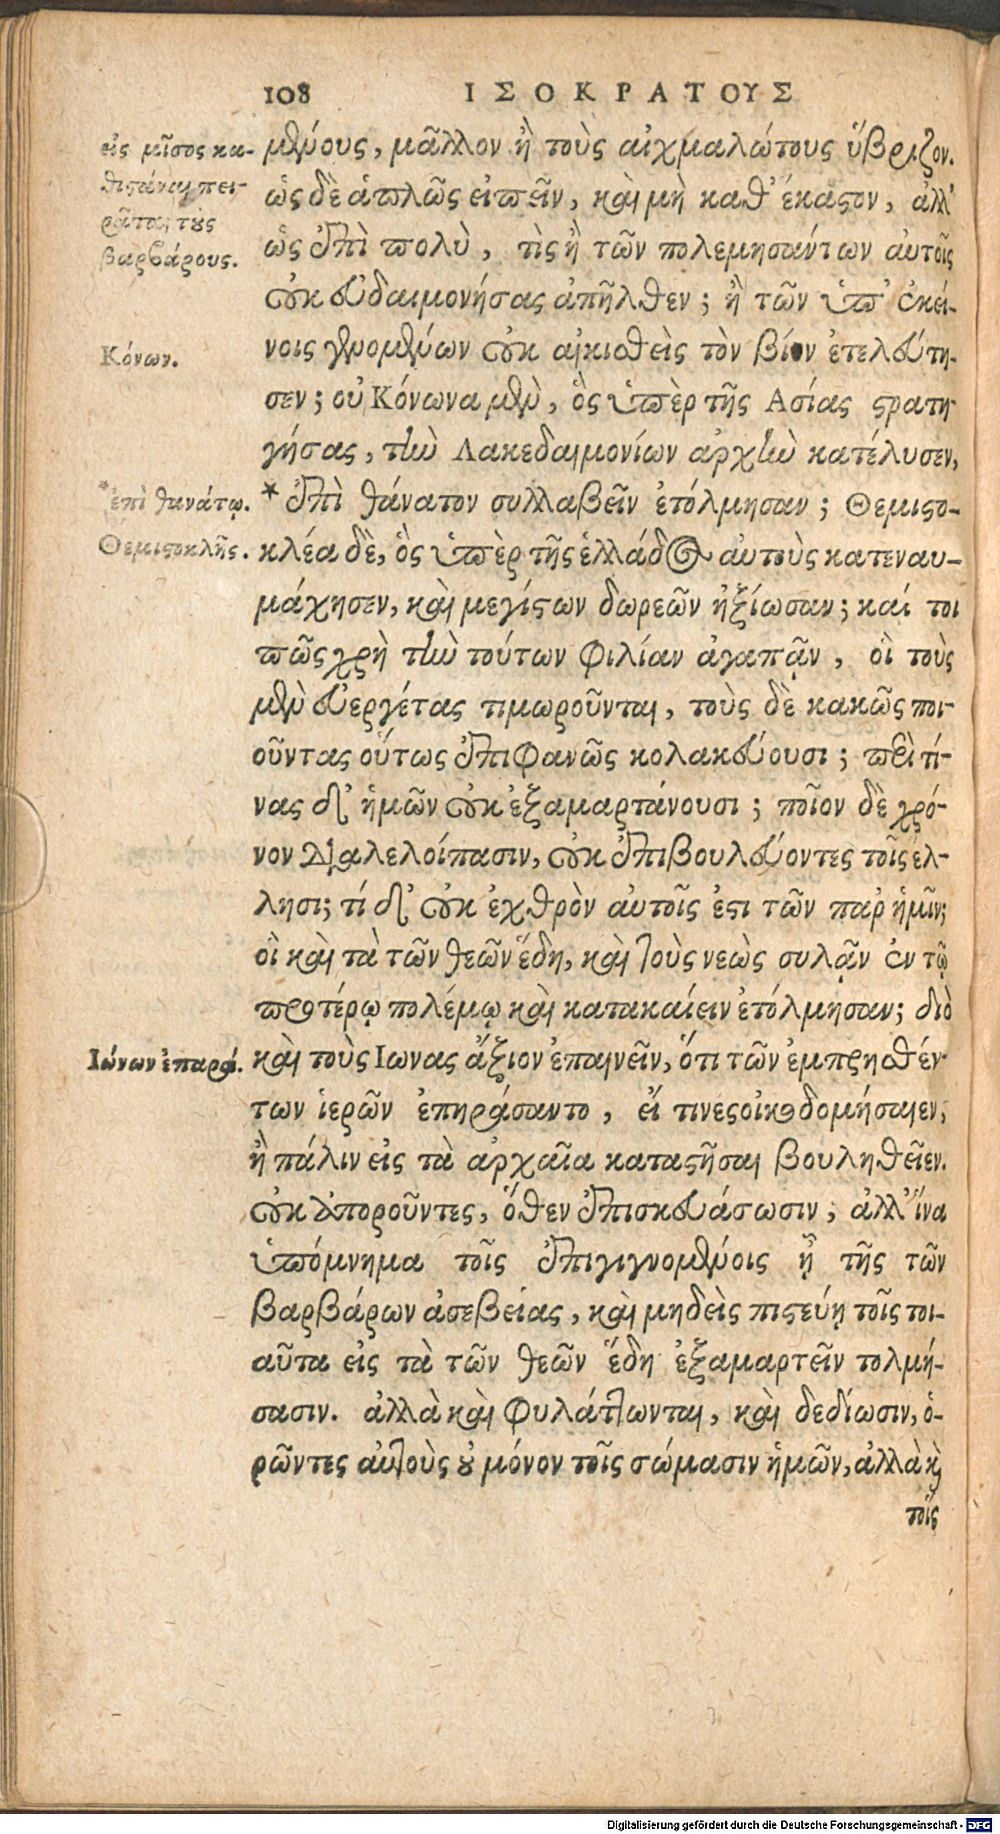 108 ΙΣΟΚΡΑΤΟΥΣ
εἰς μῖσος κα-
θιστάναι πει-
ρᾶται τοὺς
βαρβάρους.
μένους, μᾶλλον ἢ τοὺς αἰχμαλώτους ὕβριζον.
ὡς δὲ ἁπλῶς εἰπεῖν, καὶ μὴ καθ' ἕκαστον, ἀλλ'
ὡς ἐπὶ πολὺ, τὶς ἢ τῶν πολεμησάντων αὐτοῖς
οὐκ εὐδαιμονήσας ἀπῆλθεν; ἢ τῶν ὑπ' ἐκεί-
Κόνων.
νοις γενομένων οὐκ αἰκισθεὶς τὸν βίον ἐτελεύτη-
σεν; οὐ Κόνωνα μὲν, ὃς ὑπὲρ τῆς Ασίας στρατη-
γήσας, τὴν Λακεδαιμονίων ἀρχὴν κατέλυσεν,
*ἐπὶ θανάτῳ.
* ἐπὶ θάνατον συλλαβεῖν ἐτόλμησαν; Θεμιστο-
Θεμιστοκλῆς.
κλέα δὲ, ὃς ὑπὲρ τῆς ἑλλάδος αὐτοὺς κατεναυ-
μάχησεν, καὶ μεγίστων δωρεῶν ἠξίωσαν; καί τοι
πῶς χρὴ τὴν τούτων φιλίαν ἀγαπᾷν, οἳ τοὺς
μὲν εὐεργέτας τιμωροῦνται, τοὺς δὲ κακῶς ποι-
οῦντας οὕτως ἐπιφανῶς κολακεύουσι; περὶ τί-
νας δ' ἡμῶν οὐκ ἐξαμαρτάνουσι; ποῖον δὲ χρό-
νον διαλελοίπασιν, οὐκ ἐπιβουλεύοντες τοῖς ἑλ-
λησι; τί δ' οὐκ ἐχθρὸν αὐτοῖς ἐστι τῶν παρ' ἡμῖν;
οἳ καὶ τὰ τῶν θεῶν ἕδη, καὶ τοὺς νεὼς συλᾷν ἐν τῷ
προτέρῳ πολέμῳ καὶ κατακαίειν ἐτόλμησαν; διὸ
Ιώνων ἐπαραί.
καὶ τοὺς Ιωνας ἄξιον ἐπαινεῖν, ὅτι τῶν ἐμπρησθέν-
των ἱερῶν ἐπηράσαντο, εἴ τινες οἰκοδομήσαιεν,
ἢ πάλιν εἰς τὰ ἀρχαῖα καταστῆσαι βουληθεῖεν.
οὐκ ἀποροῦντες, ὅθεν ἐπισκευάσωσιν, ἀλλ' ἵνα
ὑπόμνημα τοῖς ἐπιγιγνομένοις ᾖ τῆς τῶν
βαρβάρων ἀσεβείας, καὶ μηδεὶς πιστεύῃ τοῖς τοι-
αῦτα εἰς τὰ τῶν θεῶν ἕδη ἐξαμαρτεῖν τολμή-
σασιν. ἀλλὰ καὶ φυλάττωνται, καὶ δεδίωσιν, ὁ-
ρῶντες αὐτοὺς οὐ μόνον τοῖς σώμασιν ἡμῶν, ἀλλὰ καὶ
τοῖς
Digitalisierung gefördert durch die Deutsche Forschungsgemeinschaft - DFG